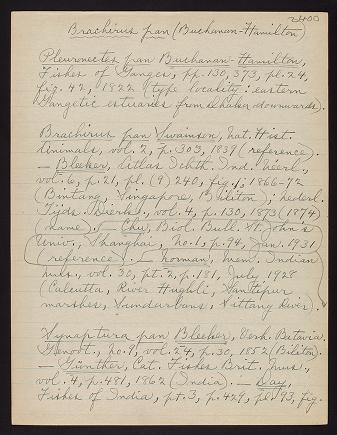 2400
Brachirus pan (Buchanan-Hamilton)
Pleuronectes pan Buchanan-Hamilton,
Fishes of Ganges, pp. 130, 373, pl. 24,
fig. 42, 1822 (type locality: eastern
Gangetic estuaries from downwards).
Brachirus pan Swainson, Nat. Hist.
Animals, vol. 2, p. 303, 1839 (reference).
— Bleeker, Atlas Ichth. Ind. Néerl.,
vol. 6, p. 21, pl. (9) 240, fig. 1, 1866-72
(Bintang, Singapore, Biliton); Nederl.
Tijds. Dierk., vol. 4, p. 130, 1873 (1874)
(name). — Chu, Biol. Bull. St. John's
Univ., Shanghai, no. 1, p. 94, Jan. 1931
(reference). — Norman, Mem. Indian
Mus., vol. 30, pt. 2, p. 181, July 1928
(Calcutta, River Hughli, Santipur
marshes, Sunderbans, Sittang River).
Synaptura pan Bleeker, Verh. Batavia.
Genoot., no. 9, vol. 24, p. 30, 1852 (Biliton).
— Günther, Cat. Fishes Brit. Mus.,
vol. 4, p. 481, 1862 (India). — Day,
Fishes of India, pt. 3, p. 429, pl. 93, fig.